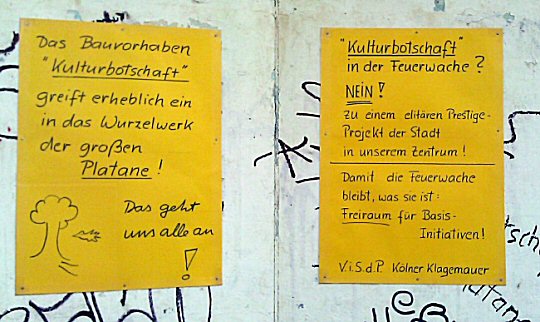 Das Bauvorhaben
"Kulturbotschaft"
greift erheblich ein
in das Wurzelwerk
der großen
Platane!
Das geht
uns alle an
!
"Kulturbotschaft"
in der Feuerwache?
NEIN!
zu einem elitären Prestige-
Projekt der Stadt
in unserem Zentrum!
Damit die Feuerwache
bleibt, was sie ist:
Freiraum für Basis-
Initiativen!
V.i.S.d.P Kölner Klagemauer